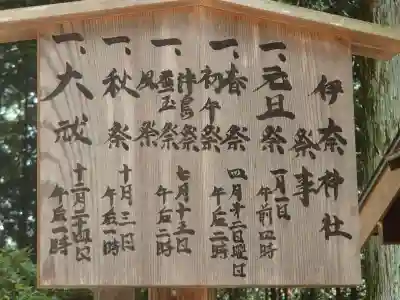 伊奈神社
祭事
一、元旦祭 一月一日 午前四時
一、春祭 初午祭 四月第二日曜日 午后二時
一、津島祭 七月十五日 午后二時
一、秋祭 十月三日 午后一時
一、大祓 十二月二十四日 午后一時